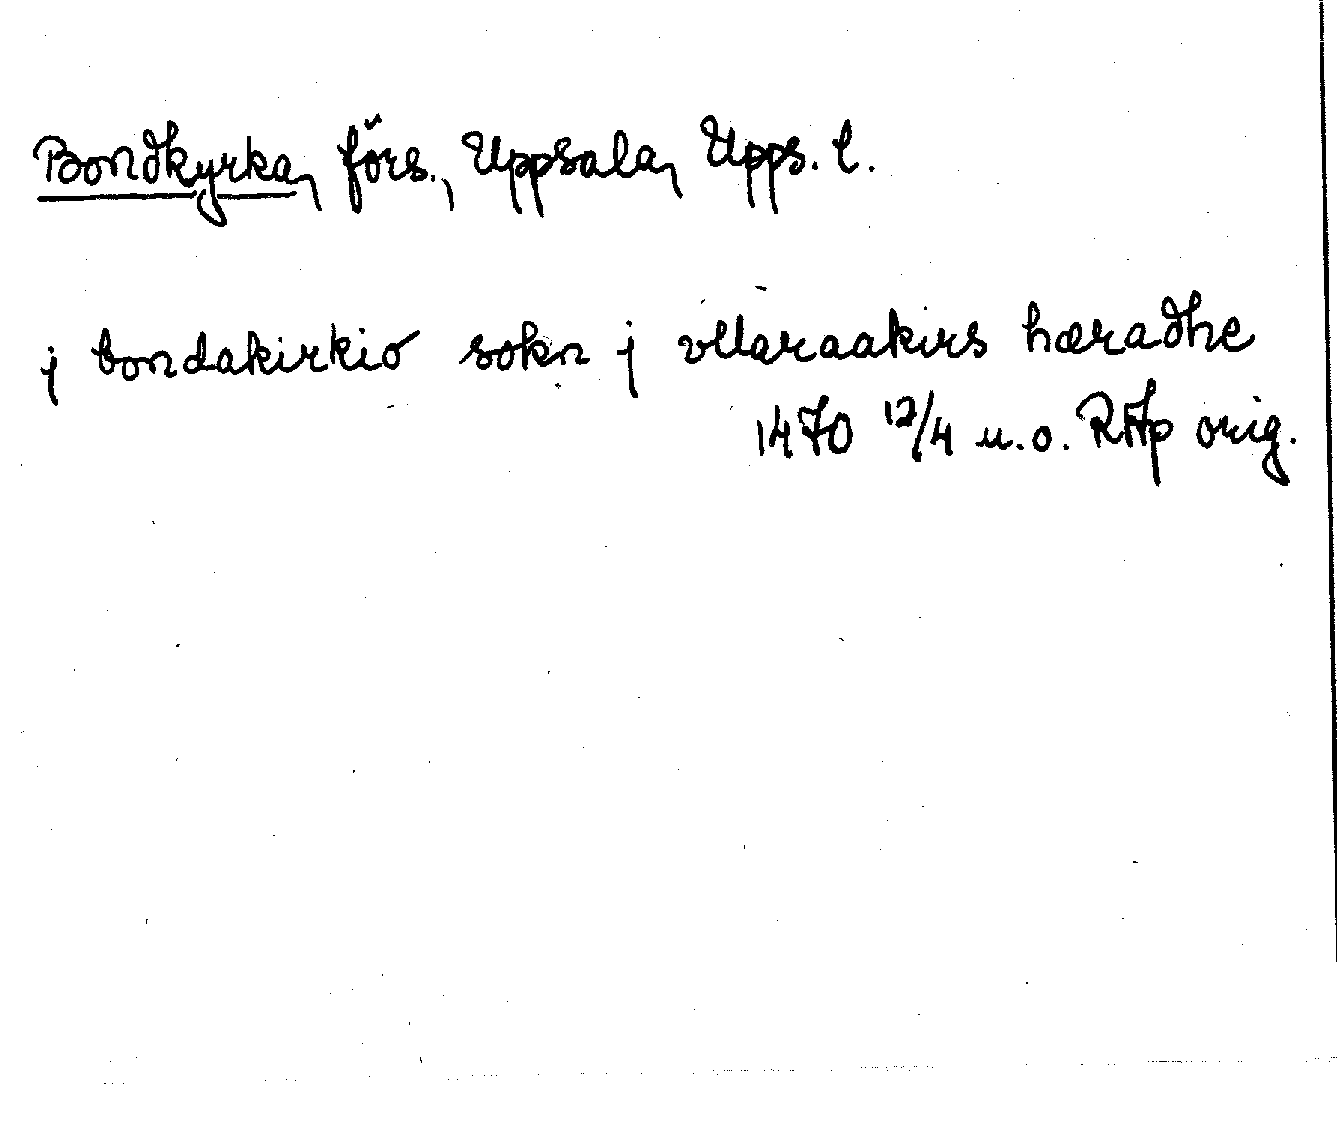 Bondkyrka, förs., Uppsala, Upps. l.
j bondakirkio sokn j vllaraakirs hæradhe
1470 12/4 u.o. RAp orig.